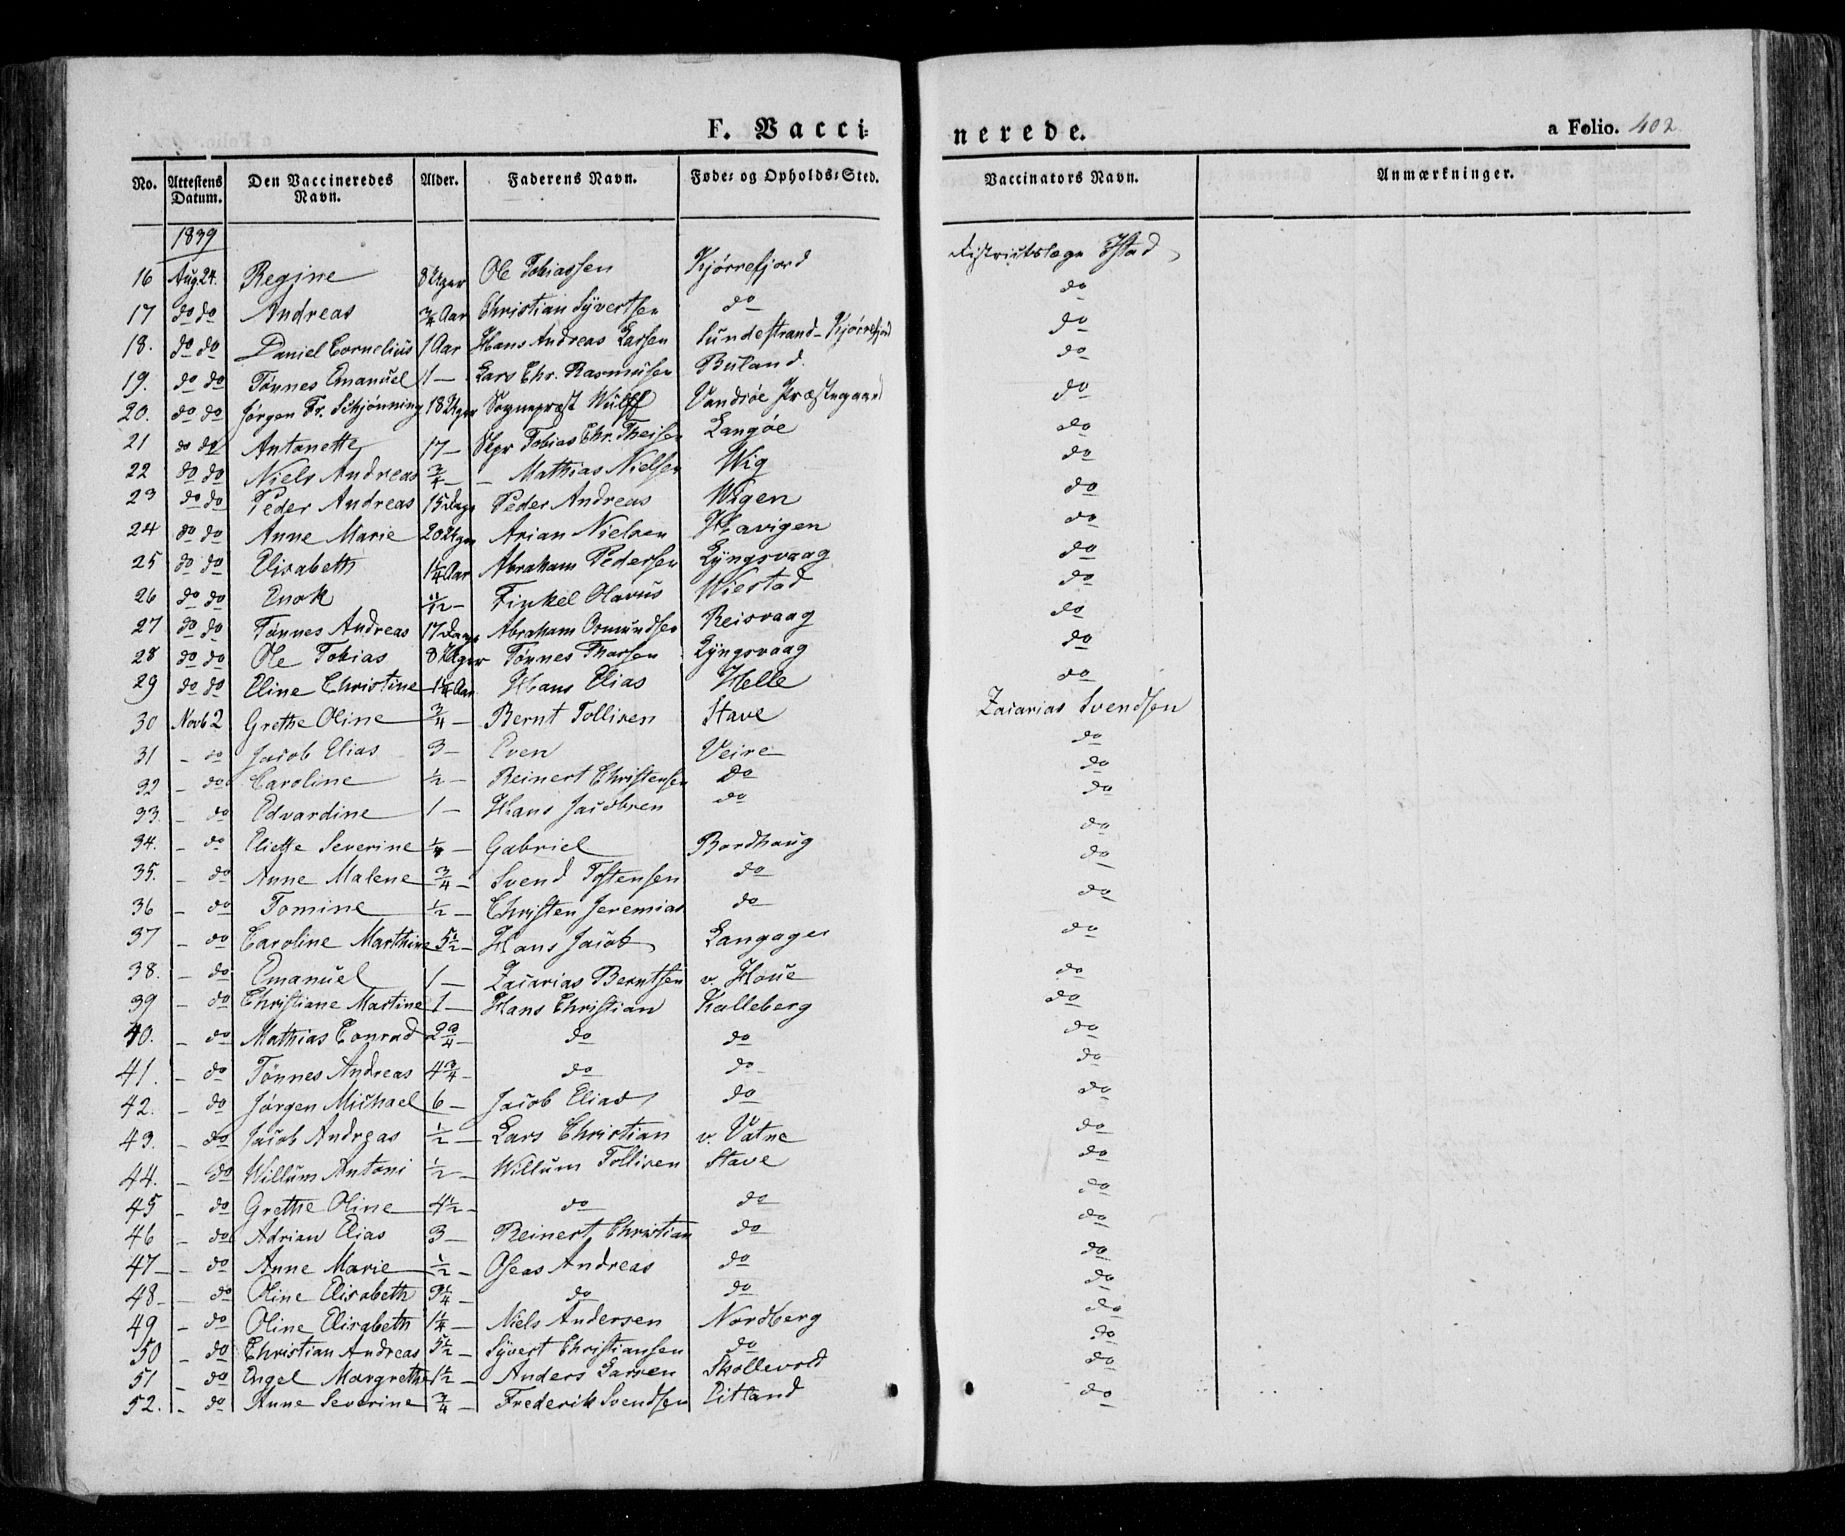 F. Vacci= nerede. a Folio. 402.
No. Attestens Datum. Den Vaccineredes Navn. Alder. Faderens Navn. Føde= og Opholds=Sted. Vaccinators Navn. Anmærkninger.
1839
16 Aug 24. Regine 8 Uger Ole Tobiassen Kjørrefjord Districtslæge Ystad
17 do do Andreas 3/4 Aar Christian Syvertsen do do
18. do do Daniel Cornelius 1 Aar Hans Andreas Larsen Lundestrand - Kjørrefjord do
19. do do Tønnes Emanuel 1 — Lars Chr. Rasmusen Buland. do
20. do do Jørgen Fr. Schjønning 18 Uger Sognepræst Wulff Vandsøe Præstegaard do
21 do do Antonette 17 — Skpr Tobias Chr. Theisen Langøe do
22 do do Niels Andreas 3/4 — - Mathias Nielsen Wig do
23 do do Peder Andreas 15 Dage Peder Andreas Wigen do
24 do do Anne Marie 20 Uger Arian Nielsen Havigen do
25 do do Elisabeth 1 1/4 Aar Abraham Pedersen Lyngsvaag do
26 do do Enok 11/12 — Finkel Olavus Wiestad do
27 do do Tønnes Andreas 17 Dage Abraham Osmundsen Reisvaag do
28 do do Ole Tobias 8 Uger Tønnes Thorsen Lyngsvaag do
29 do do Eline Christine 1 1/4 Aar Hans Elias Helle do
30 Novb 2 Grethe Oline 3/4 — Bernt Tollisen Stave Zacarias Svendsen
31 - do Jacob Elias 3 — Even Veire do
32 - do Caroline 1/2 — Reinert Christensen Do do
33 - do Edvardine 1 — Hans Jacobsen do do
34. - do Eliese Severine 1/4 — Gabriel Bordhaug do
35. - do Anne Malene 3/4 — Svend Tostensen do do
36 - do Tomine 1/2 — Christen Jeremias do do
37 - do Caroline Marthine 5 1/2 — Hans Jacob Langager do
38. - do Emanuel 1 — Zacarias Berntsen v. Houe do
39 - do Christiane Martine 1 — Hans Christian Kalleberg do
40. - do Mathias Conrad 2 3/4 do do do
41. - do Tønnes Andreas 4 3/4 do do do
42. - do Jørgen Michael 6 — Jacob Elias do do
43. - do Jacob Andreas 1/2 — Lars Christian v. Vatne do
44. - do Willum Antoni 1/2 — Willum Tollisen Stave do
45 - do Grethe Oline 4 1/2 — do do do
46 - do Adrian Elias 3 — Reinert Christian do do
47 - do Anne Marie 1/2 — Oseas Andreas do do
48 - do Oline Elisabeth 3 1/4 — do do do
49 - do Oline Elisabeth 1 1/4 — Niels Andersen Nordberg do
50 - do Christian Andreas 5 1/2 — Syvert Christiansen do do
51 - do Engel Margrethe 1 1/2 — Anders Larsen Skollevold do
52. - do Anne Severine 3/4 — Frederik Svendsen Eitland do